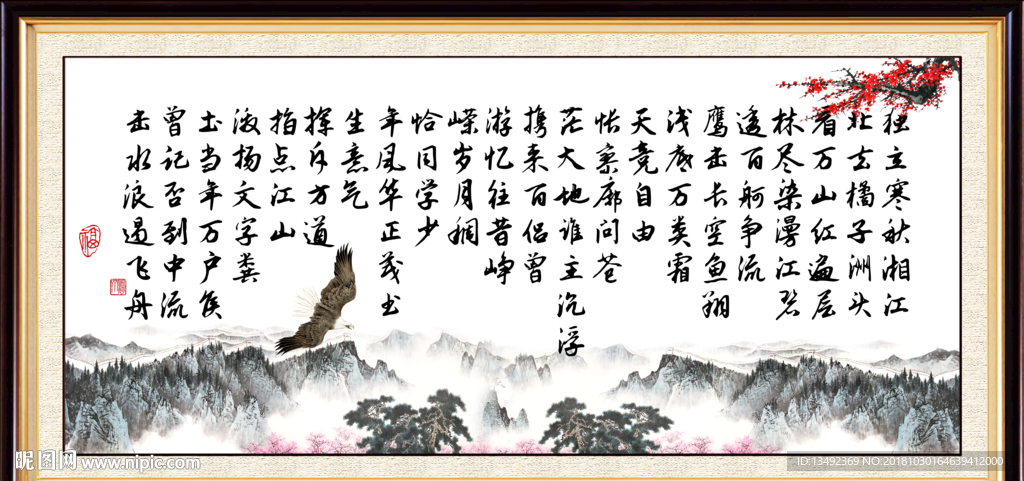 独立寒秋湘江
北去橘子洲头
看万山红遍层
林尽染漫江碧
透百舸争流
鹰击长空鱼翔
浅底万类霜
天竞自由
怅寥廓问苍
茫大地谁主沉浮
携来百侣曾
游忆往昔峥
嵘岁月稠
恰同学少
年风华正茂书
生意气
挥斥方遒
指点江山
激扬文字粪
土当年万户侯
曾记否到中流
击水浪遏飞舟
昵图网 www.nipic.com
ID:13492369 NO:20181030164639412000